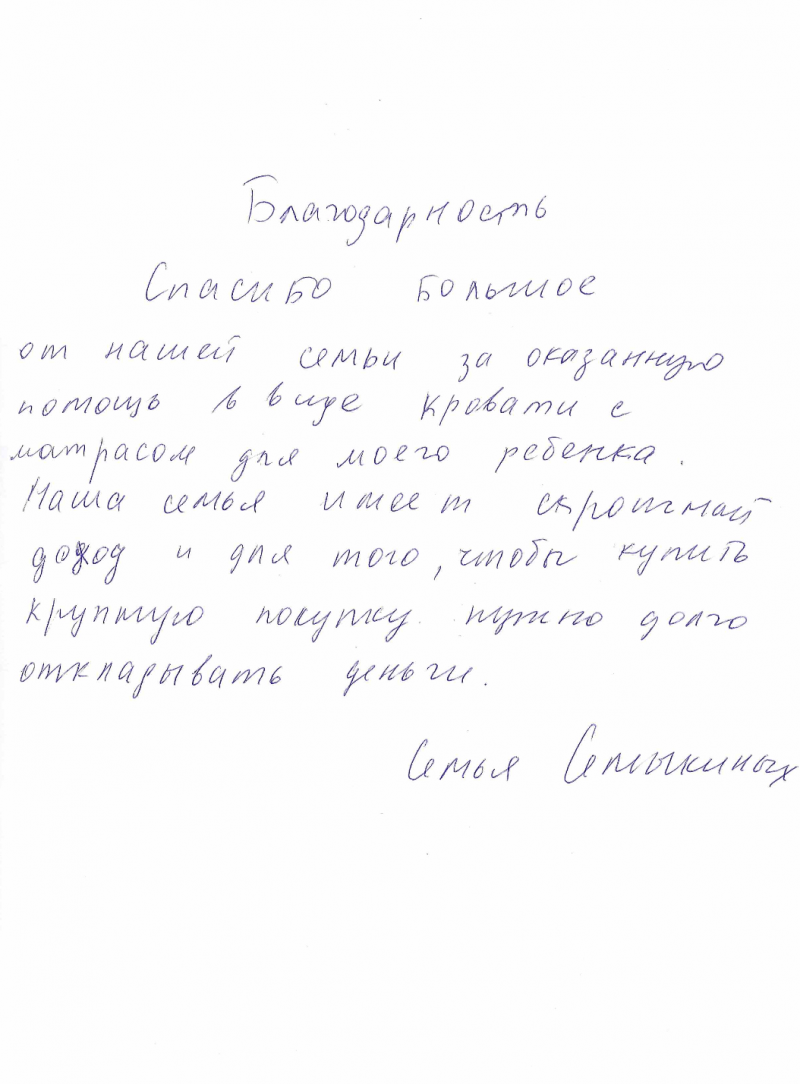 Благодарность
Спасибо большое
от нашей семьи за оказанную
помощь в виде кровати с
матрасом для моего ребенка.
Наша семья имеет скромный
доход и для того, чтобы купить
крупную покупку нужно долго
откладывать деньги.
Семья